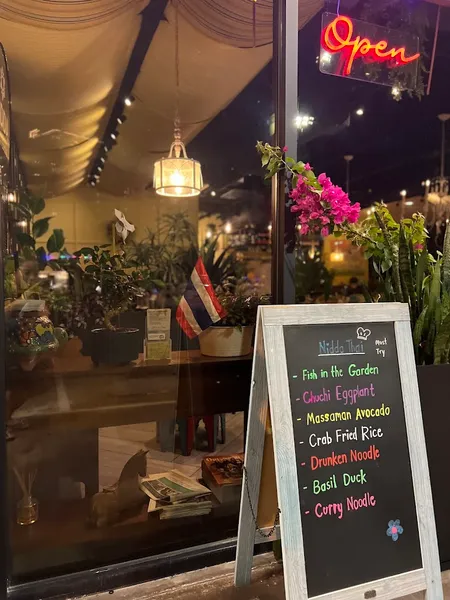 Open
Niddo Thai
Must
Try
- Fish in the Garden
- Chuchi Eggplant
- Massaman Avocado
- Crab Fried Rice
- Drunken Noodle
- Basil Duck
- Curry Noodle